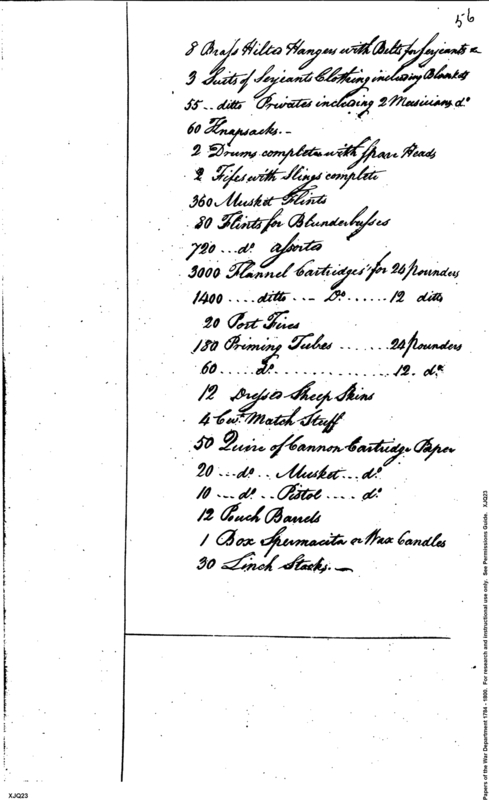 56
8 Brass Hilted Hangers with Belts for Serjeants &
3 Suits of Serjeants Clothing including Blankets
55 .. ditto Privates including 2 Musicians do
60 Knapsacks. -
2 Drums complete with spare Heads
2 Fifes with Slings complete
360 Musket Flints
80 Flints for Blunderbusses
720 ... do assorted
3000 Flannel Cartridges for 24 pounders
1400 .... ditto ... - Do ...... 12 ditto
20 Port Fires
180 Priming Tubes ....... 24 pounders
60 ...... do ............. 12. do
12 Dressed Sheep Skins
4 Cwt. Match Stuff
50 Quire of Cannon Cartridge Paper
20 ... do .. Musket ... do
10 ... do .. Pistol .... do
12 Pouch Barrels
1 Box Spermacita or Wax Candles
30 Linch Stocks. -
XJQ23
Papers of the War Department 1784 - 1800. For research and instructional use only. See Permissions Guide. XJQ23